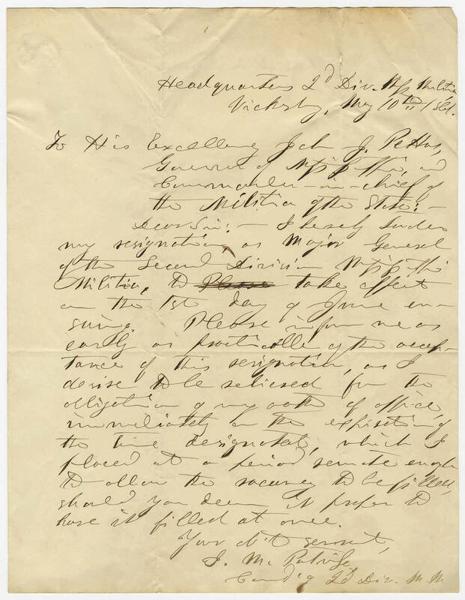 Headquarters 2d Div. Miss Militia
Vicksbg, May 10th 1861.
To His Excellency John J. Pettus,
Governor of Mississippi, and
Commander-in-chief of
the Militia of the State:-
Dear Sir:- I hereby tender
my resignation as Major General
of the Second Division Mississippi
Militia, to take effect
on the 1st day of June en-
suing. Please inform me as
early as practicable of the accep-
tance of this resignation, as I
desire to be relieved from the
obligation of my oath of office,
immediately on the expiration of
the time designated, which I
placed at a period remote enough
to allow the vacancy to be filled,
should you deem it proper to
have it filled at once.
Your obt servant,
J. M.
Comd'g 2d Div. M. M.